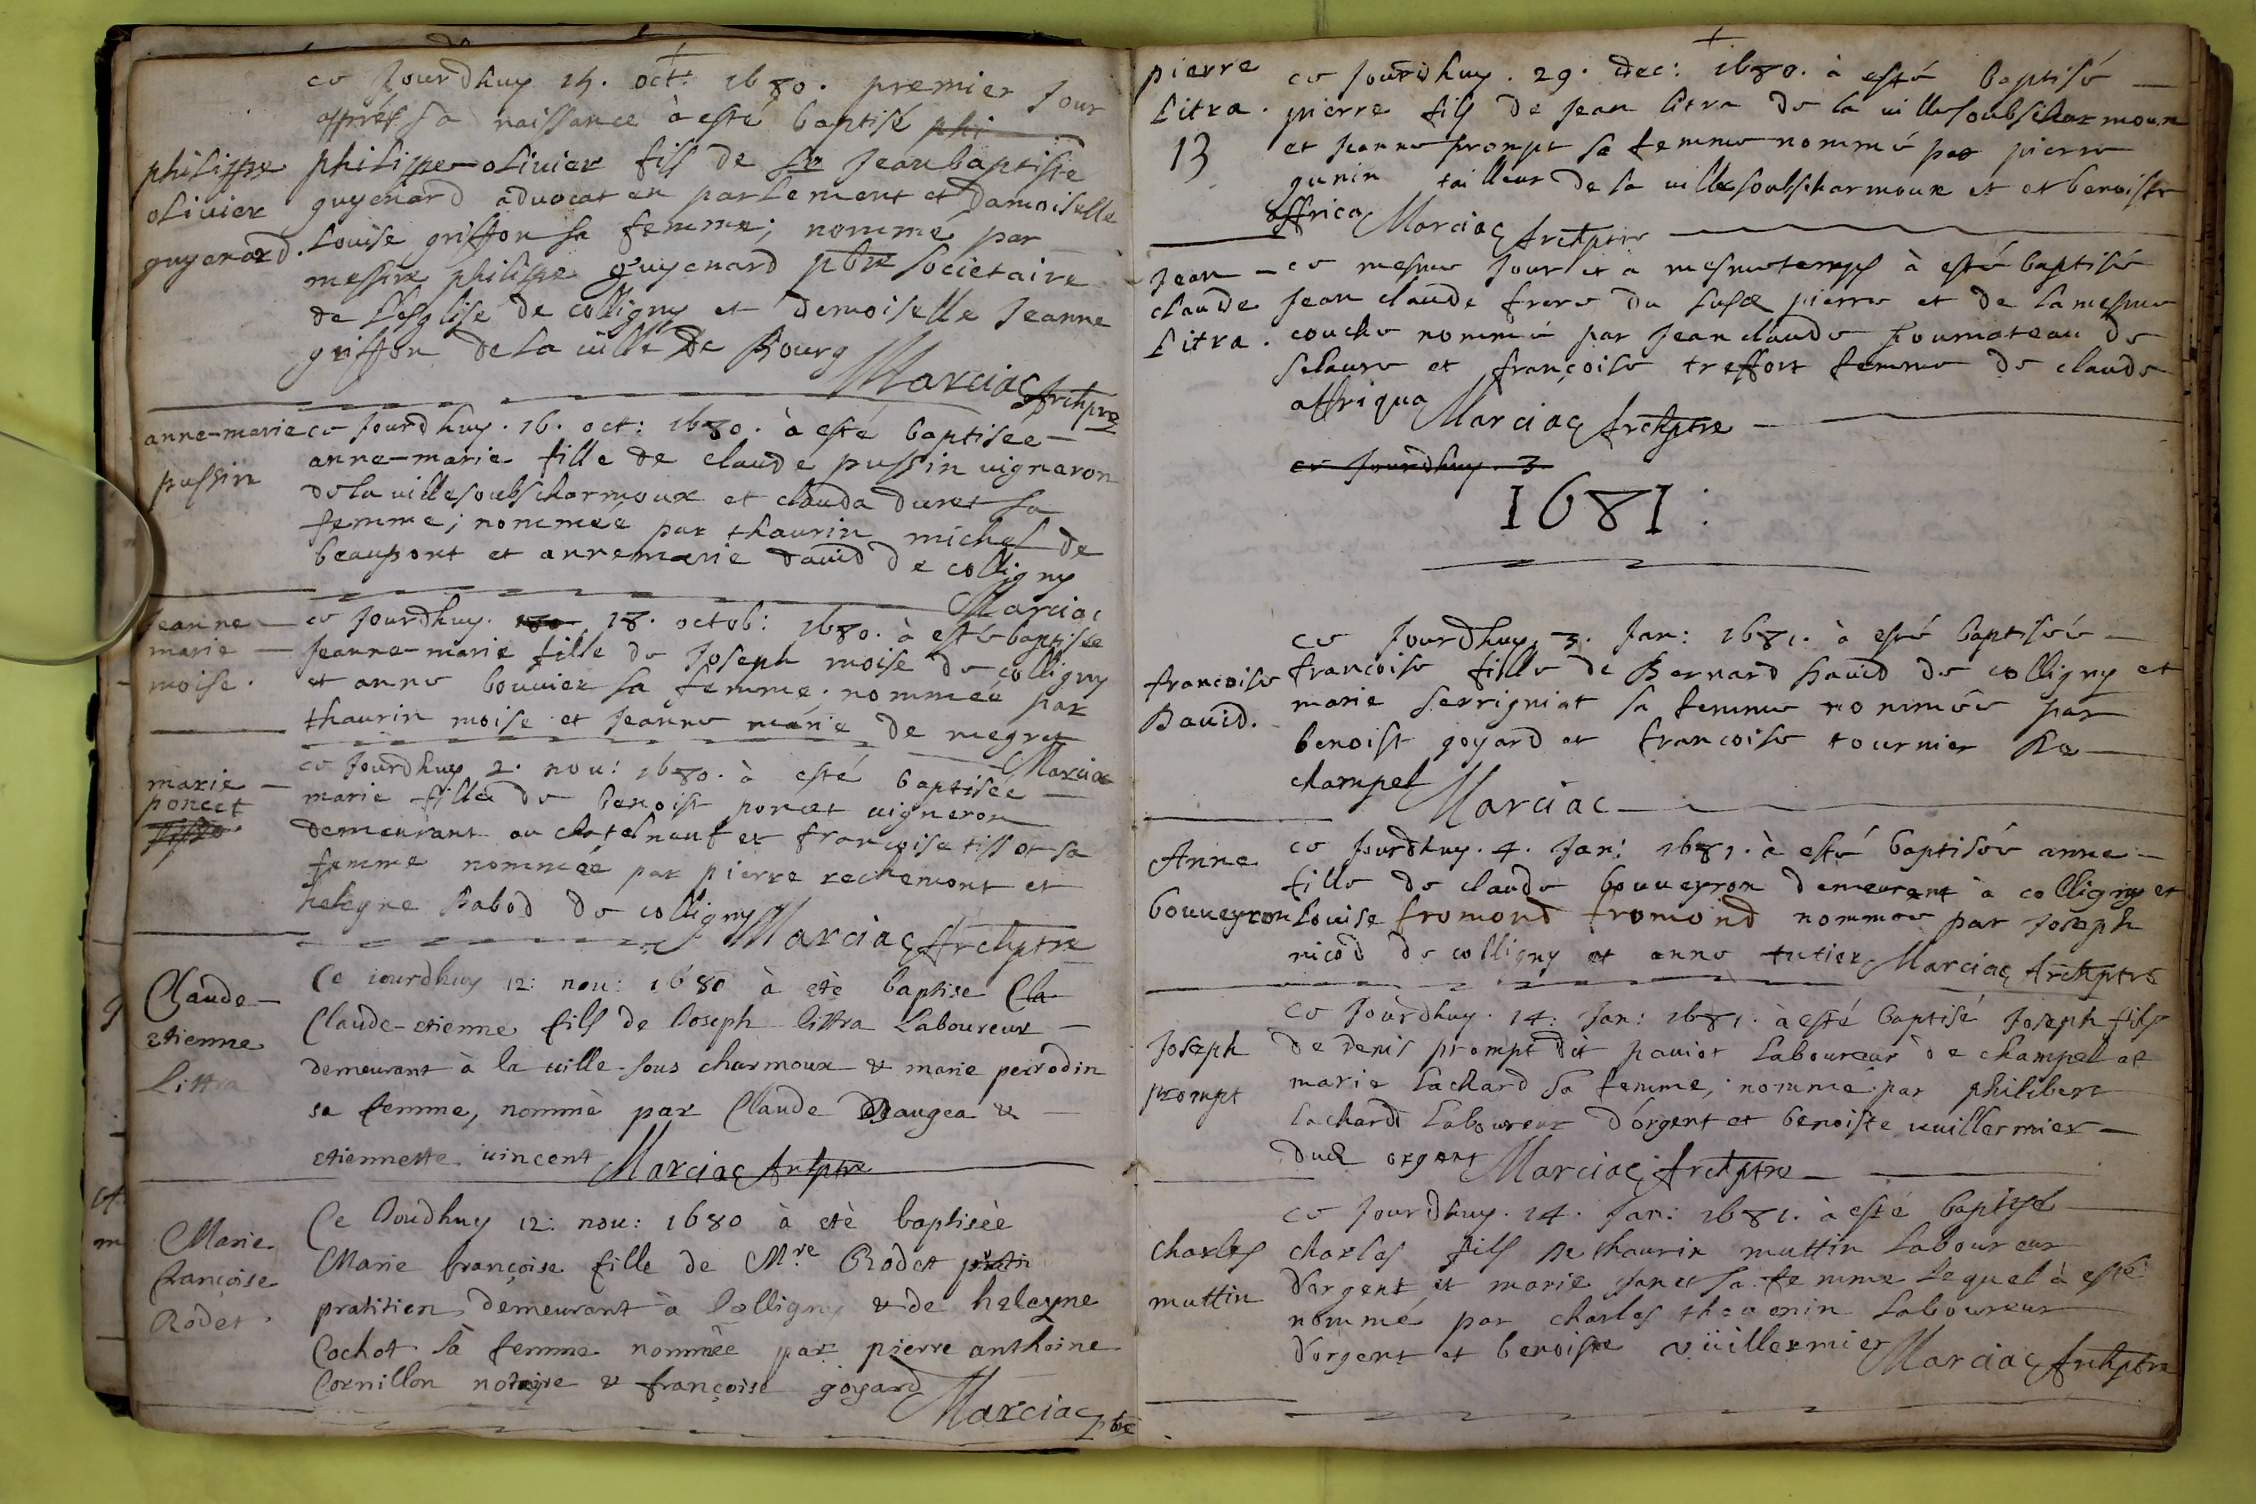 ce Jourdhuy 15. oct: 1680. premier Jour
apprés sa naissance à esté baptisé phi
philippe philippe-olivier fils de sr Jean baptiste
olivier guyenard advocat en parlement et Damoiselle
guyenard. Louise griffon sa femme; nommé par
messire philippe guyenard pbre societaire
de L'esglise de colligny et demoiselle Jeanne
griffon de la ville de Bourg
Marciac Archpre
anne-marie ce Jourdhuy. 16. oct: 1680. à esté baptisée
anne-marie fille de claude pussin vigneron
pussin
de la ville soubs charmoux et clauda duret sa
femme; nommeé par thaurin michel de
beaupont et anne marie david de colligny
Marciac
Jeanne ce Jourdhuy. 18. octob: 1680. à esté baptisée
marie Jeanne-marie fille de Joseph moise de colligny
moise. et anne bouvier sa femme; nommeé par
thaurin moise et Jeanne marie de megret
Marciac
ce Jourdhuy 2. nou: 1680. à esté baptisée
marie marie fille de benoist poncet vigneron
poncet
demeurant au chatelneuf et françoise tissot sa
femme nommeé par pierre rechemont et
heleyne Babod de colligny Marciac Archptre
Claude Ce iourdhuy 12: nou: 1680 à etè baptise Cla
etienne Claude-etienne fils de Joseph littra Laboureur
Littra demeurant à la ville sous charmoux & marie perrodin
sa femme, nommè par Claude Daugea &
etiennette vincent Marciac Archptre
Marie Ce Jourdhuy 12: nou: 1680 à etè baptisèe
françoise Marie françoise fille de Mre Rodet
Rodet. pratitien demeurant à Colligny & de heleyne
Cochot sà femme nommèe par pierre anthoine
Cornillon notayre & françoise goyard
Marciac pbre
pierre ce Jourdhuy. 29. dec: 1680. à esté baptisé
Litra. pierre fils de Jean litra de la ville soubs charmoux
13 et Jeanne prompt sa femme nommé par pierre
gunin tailleur de la ville soubs charmoux et et benoiste
affrica Marciac Archptre
Jean ce mesme Jour et a mesme temps à esté baptisé
claude Jean claude frere du susd pierre et de la mesme
Litra. couche nommé par Jean claude fournateau de
selaure et françoise treffort femme de claude
affriqua Marciac Archptre
ce Jourdhuy 3
1681:
ce Jourdhuy 3. Jan: 1681. à esté baptisée
francoise francoise fille de Bernard David de colligny et
David. marie serrigniat sa femme nommée par
benoist goyard et francoise tournier de
champel Marciac
Anne ce Jourdhuy. 4. Jan: 1681. à esté baptisée anne
fille de claude bouveyron demeurant à colligny et
bouveyron Louise fromond fromond nommee par Joseph
nicod de colligny et anne tutier Marciac Archptre
ce Jourdhuy. 14: Jan: 1681. à esté baptisé Joseph fils
Joseph de denis prompt dit paviot Laboureur de champel et
prompt marie Lachard sa femme; nommé par philibert
Lachard Laboureur d'orgent et benoiste vuillermier
dud orgent Marciac Archptre
ce Jourdhuy. 14. Jan: 1681. à esté baptisé
charles charles fils de thaurin muttin Laboureur
muttin d'orgent et marie Janet sa femme Lequel à esté
nommé par charles thevenin Laboureur
d'orgent et benoiste vüillermier Marciac Archptre